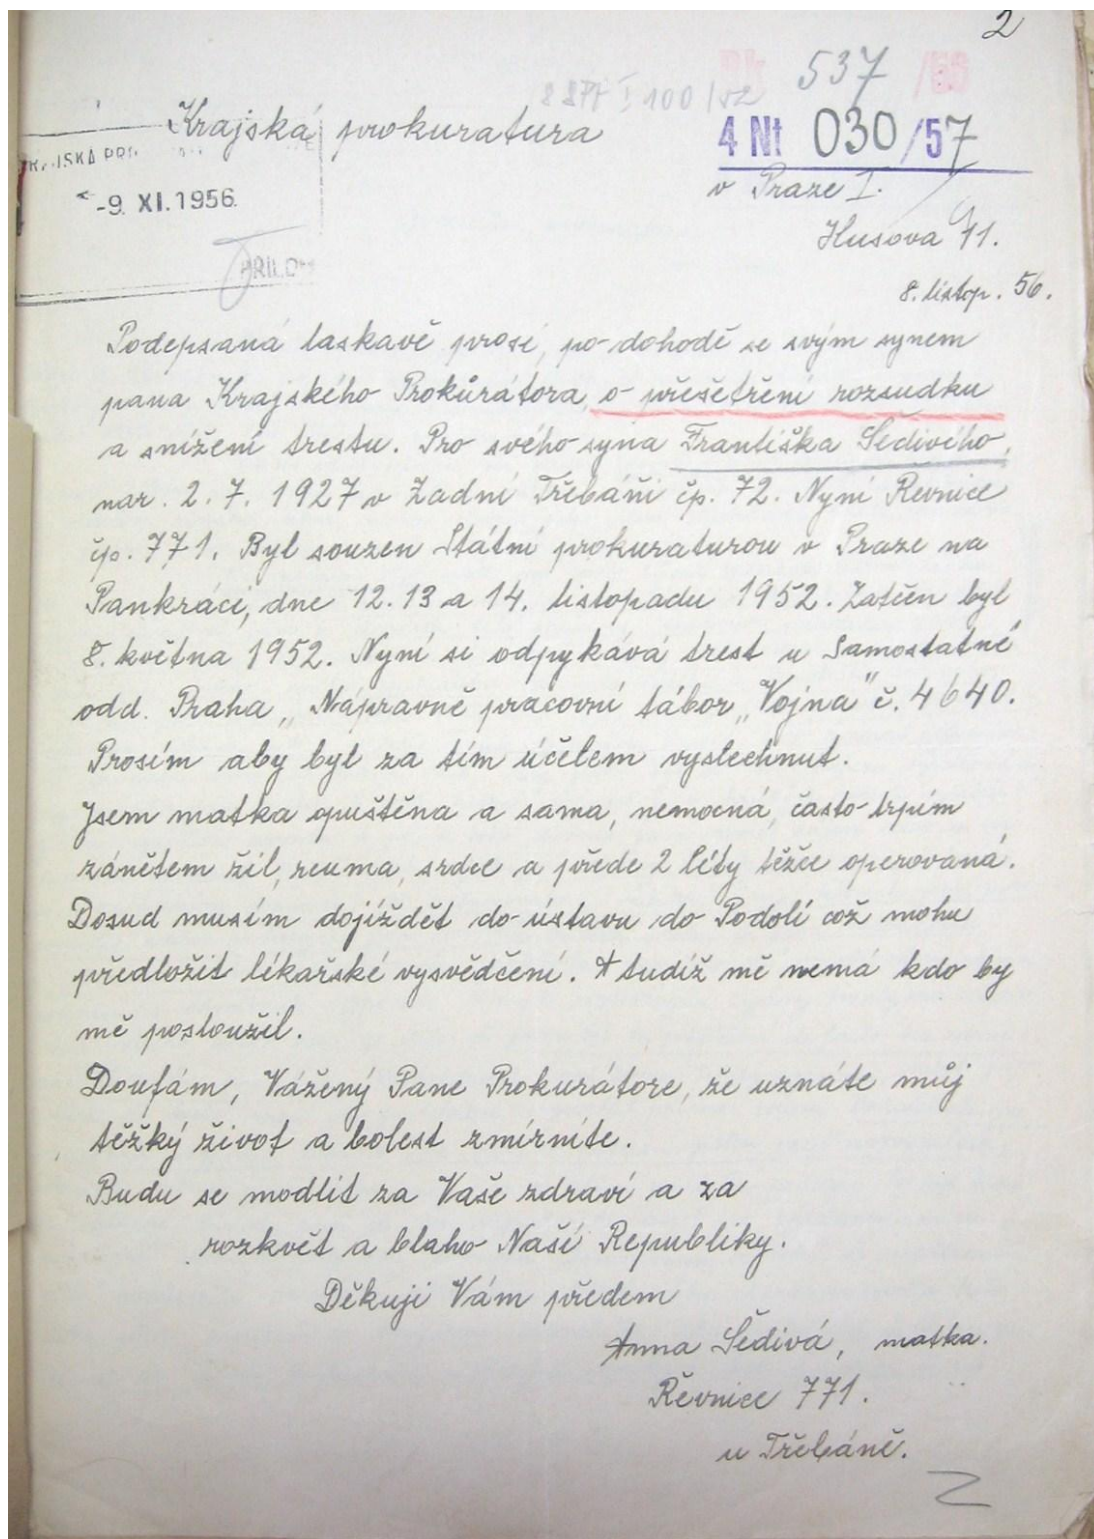 2
537
4 Nt 030/57
Krajská prokuratura
-9. XI. 1956
v Praze I.
Husova 11.
8. listop. 56.
Podepsaná laskavě prosí, po dohodě se svým synem
pana Krajského Prokůrátora, o přešetření rozsudku
a snížení trestu. Pro svého syna Františka Šedivého,
nar. 2. 7. 1927 v Zadní Třebáni čp. 72. Nyní Řevnice
čp. 771. Byl souzen Státní prokuraturou v Praze na
Pankráci, dne 12. 13 a 14. listopadu 1952. Zatčen byl
8. května 1952. Nyní si odpykává trest u Samostatné
odd. Praha „Nápravně pracovní tábor „Vojna" č. 4640.
Prosím aby byl za tím účelem vyslechnut.
Jsem matka opuštěna a sama, nemocná, často trpím
zánětem žil, reuma, srdce a přede 2 léty těžce operovaná.
Dosud musím dojíždět do ústavu do Podolí což mohu
předložit lékařské vysvědčení. A tudíž mě nemá kdo by
mě posloužil.
Doufám, Vážený Pane Prokurátore, že uznáte můj
těžký život a bolest zmírníte.
Budu se modlit za Vaše zdraví a za
rozkvět a blaho Naší Republiky.
Děkuji Vám předem
Anna Šedivá, matka.
Řevnice 771.
u Třebáně.